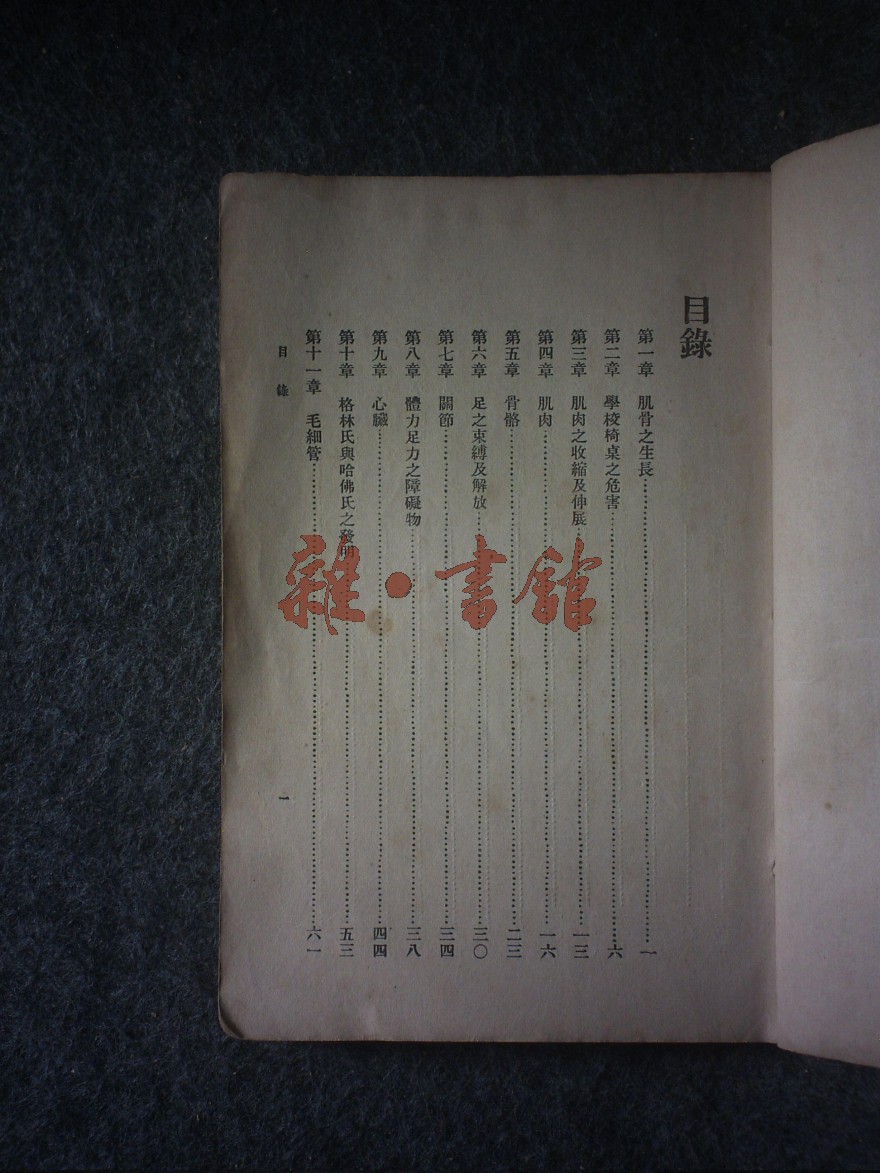 目錄
第一章 肌骨之生長……一
第二章 學校椅桌之危害……六
第三章 肌肉之收縮及伸展……一三
第四章 肌肉……一六
第五章 骨骼……二三
第六章 足之束縛及解放……三〇
第七章 關節……三四
第八章 體力足力之障礙物……三八
第九章 心臟……四四
第十章 格林氏與哈佛氏之發明……五三
第十一章 毛細管……六一
目錄
一
雜·書館